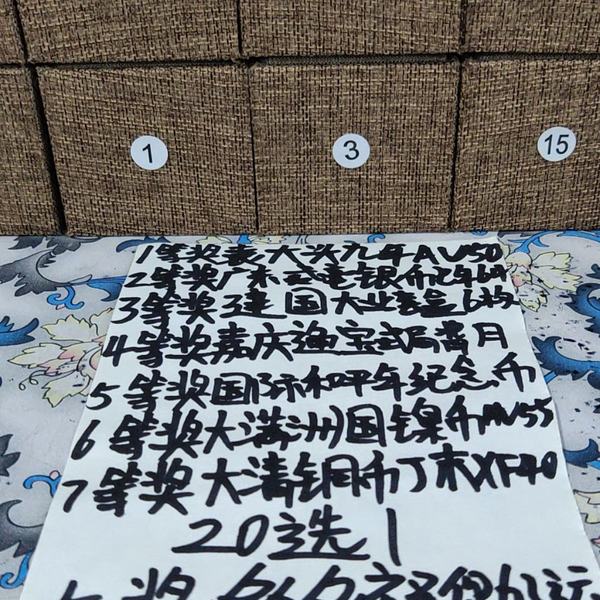 1 3 15
1等奖袁大头九年AU50
2等奖广东龙毫银币
3等奖建国大业套盒6枚
4等奖嘉庆通宝背月
5等奖国际和平年纪念币
6等奖大满洲国镍币AU55
7等奖大清铜币丁未XF40
20选1